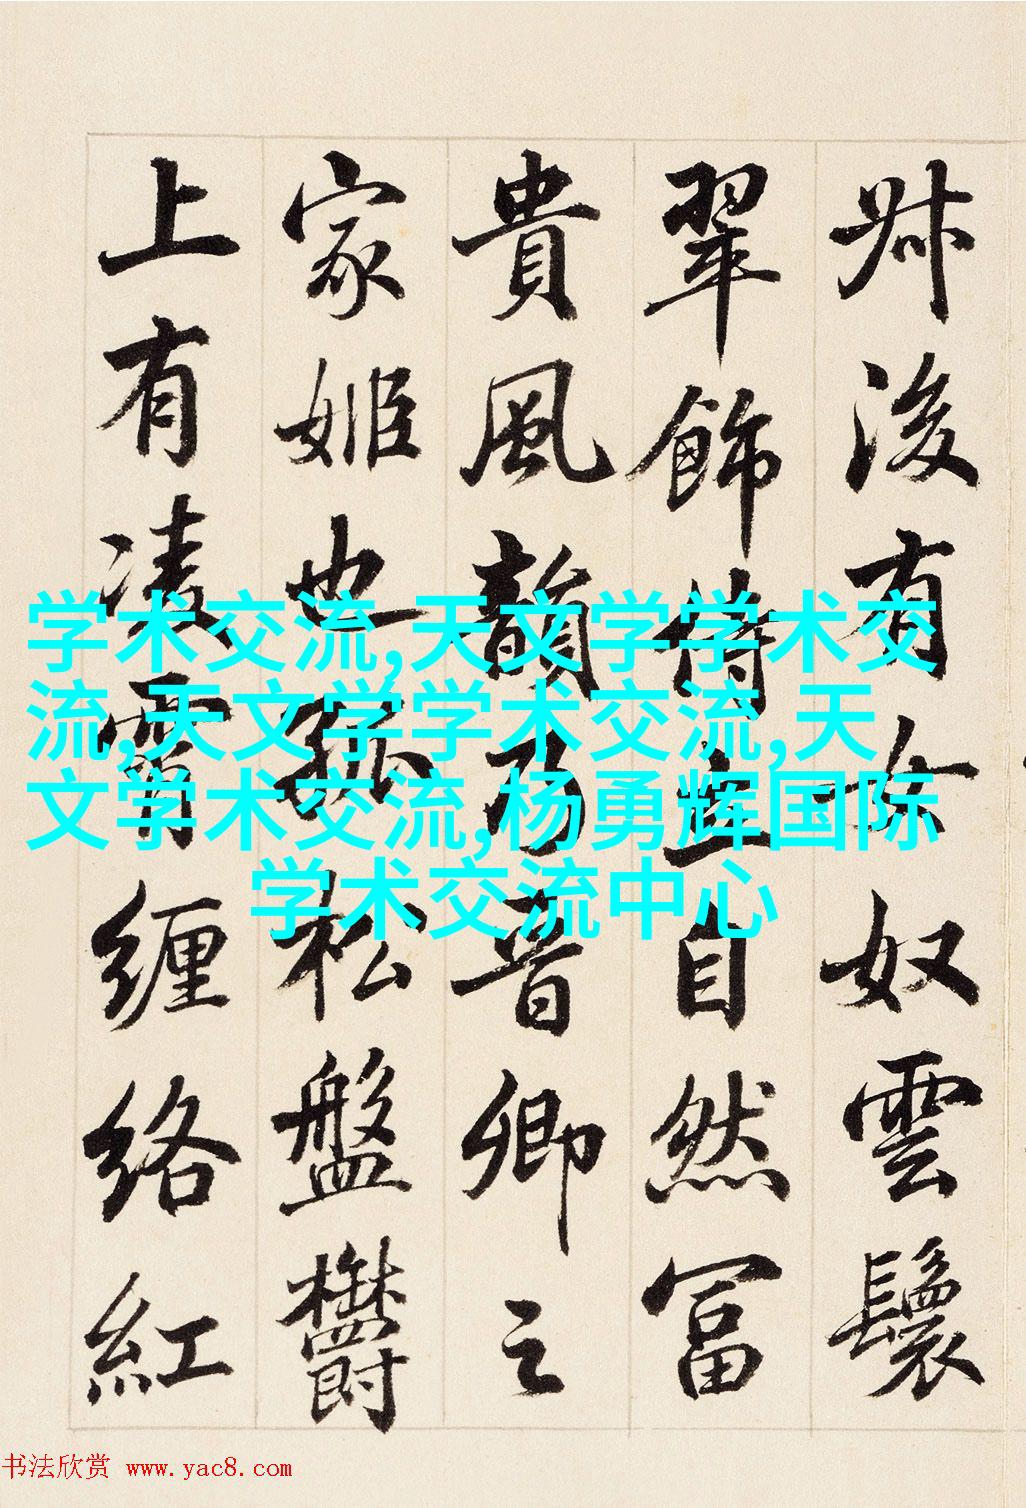 叔後有女奴雲鬟
翠飾侍立自然富
貴風韻乃晉卿之
家姬也孤松盤欝
上有凌霄纏絡紅
学术交流,天文学学术交
流,天文学学术交流,天
文学术交流,杨勇辉国际
学术交流中心
书法欣赏 www.yac8.com